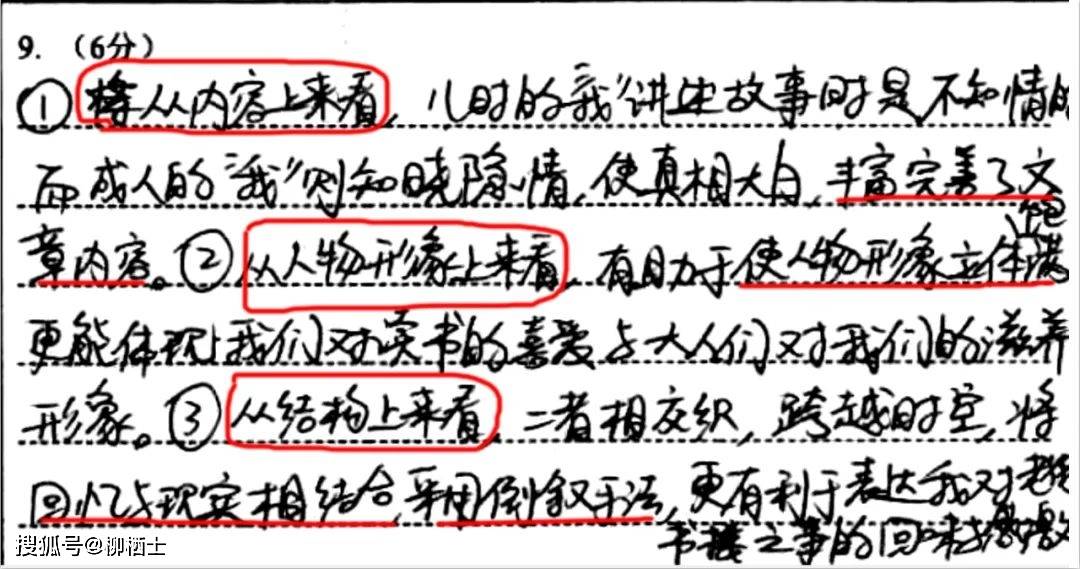 9. （6分）
① 从内容上来看，儿时的“我”讲述故事时是不知情的
而成人的“我”则知晓隐情，使真相大白，丰富完善了文
章内容。② 从人物形象上来看，有助于使人物形象立体饱满
更能体现出我们对卖书的喜爱与大人们对我们的滋养
形象。③ 从结构上来看，二者相交织，跨越时空，将
回忆与现实相结合，采用倒叙手法，更有利于表达我对
书 之事的回味 感激
搜狐号@柳栖士